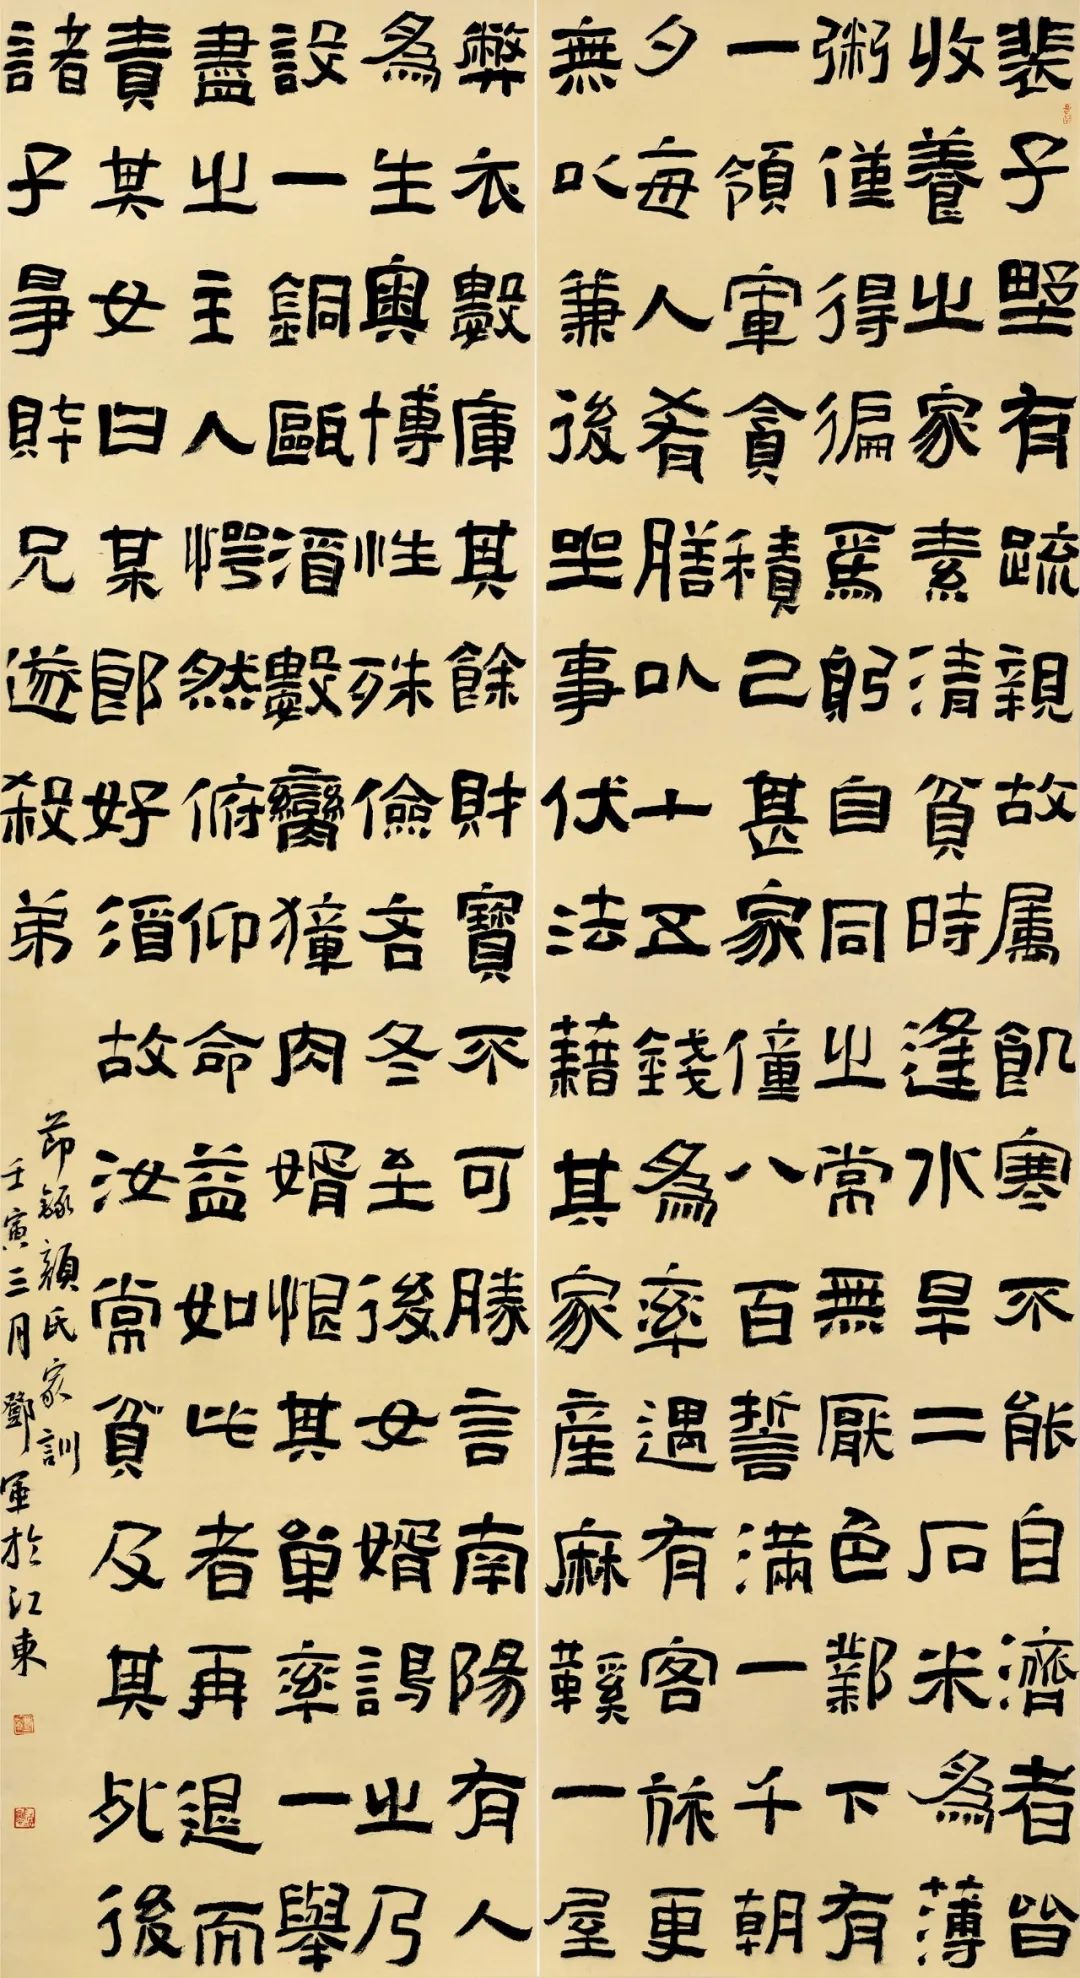 裴子野有疏親故属飢寒不能自濟者皆
收養之家素清貧時逢水旱二石米為薄
粥僅得徧焉躬自同之常無厭色鄴下有
一領軍貪積已甚家僮八百誓滿一千朝
夕每人肴膳以十五錢為率遇有客旅更
無以兼後坐事伏法藉其家產麻鞵一屋
弊衣數庫其餘財寶不可勝言南陽有人
為生奧博性殊儉吝冬至後女婿謁之乃
設一銅甌酒數臠獐肉婿恨其單率一舉
盡之主人愕然俯仰命益如此者再退而
責其女曰某郎好酒故汝常貧及其死後
諸子爭財兄遂殺弟
節錄顏氏家訓
壬寅三月鄧軍於江東